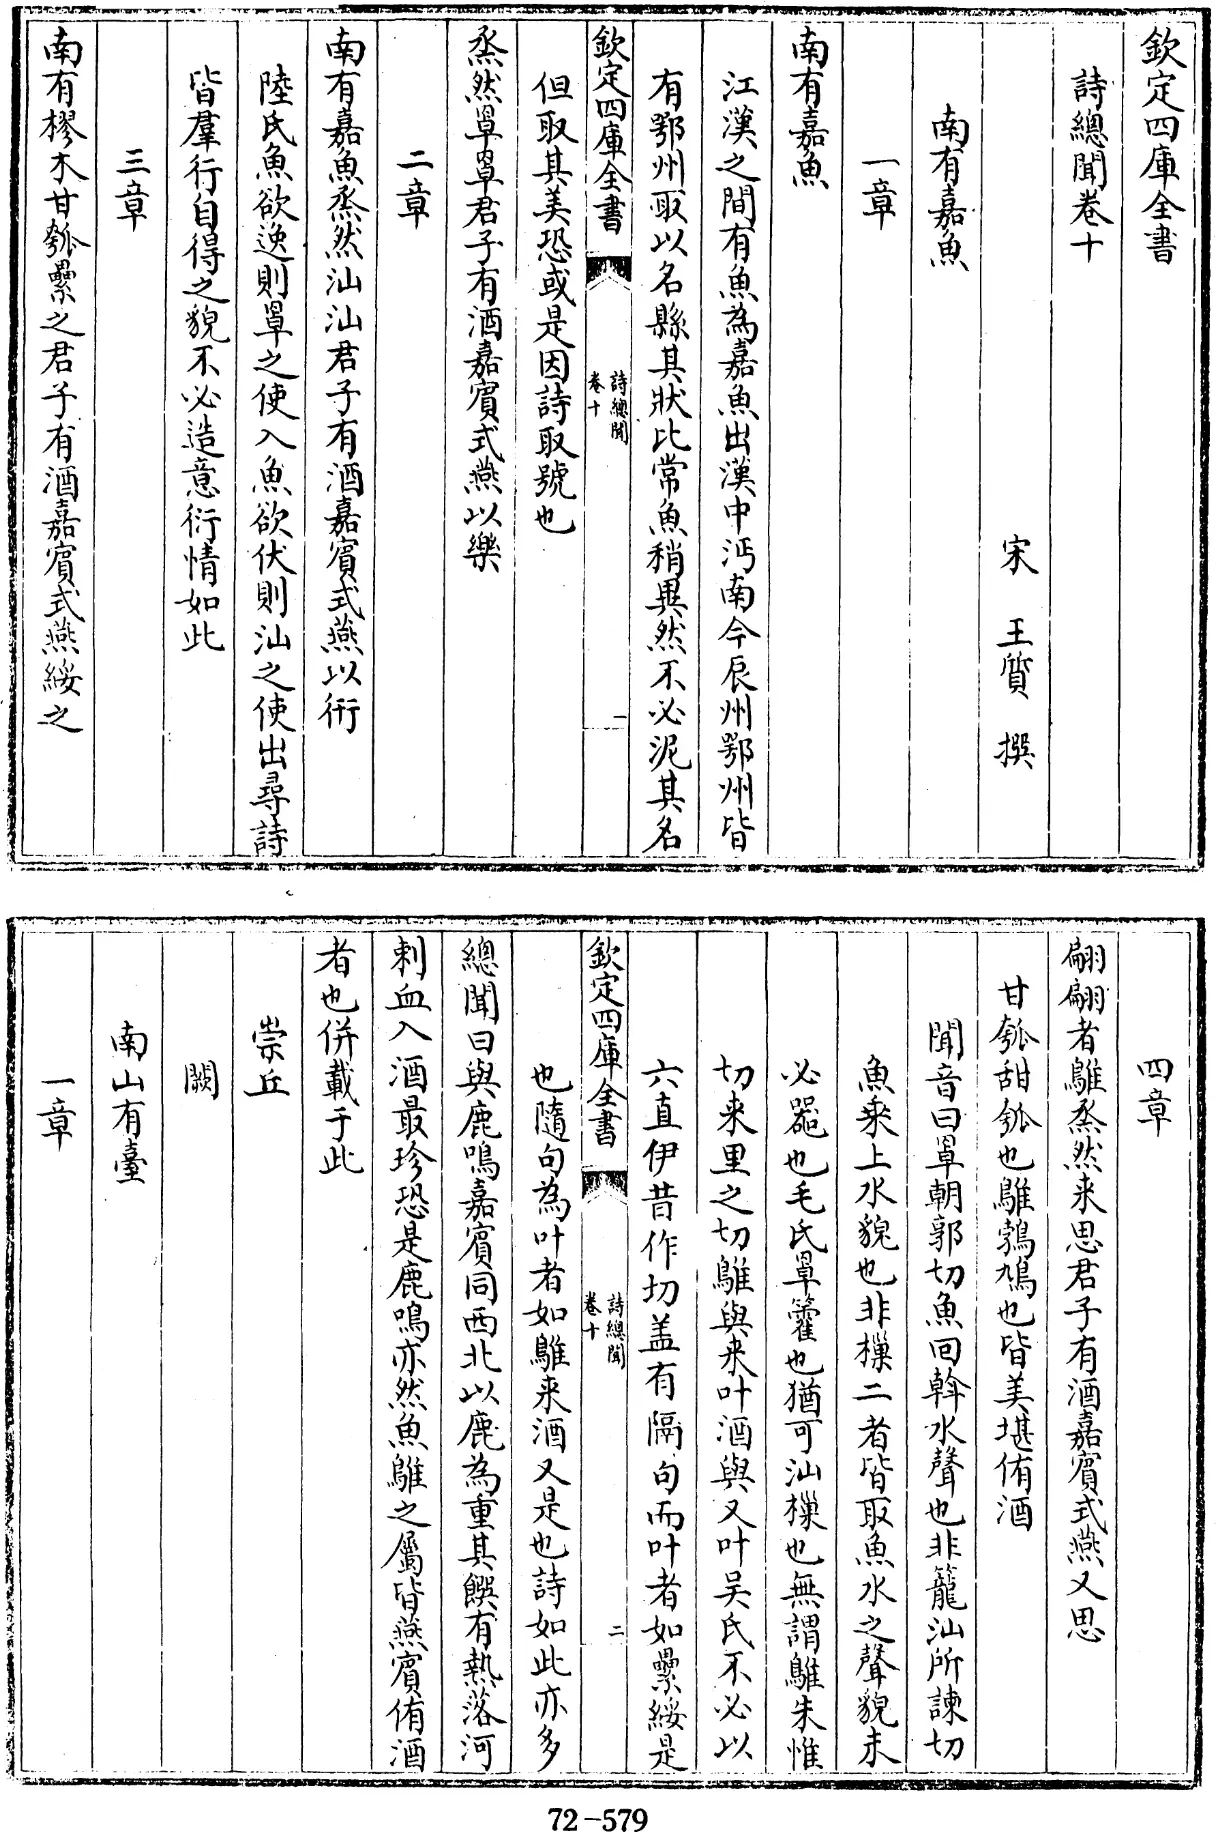 欽定四庫全書
詩總聞卷十
宋 王質 撰
南有嘉魚
一章
南有嘉魚
江漢之間有魚為嘉魚出漢中沔南今辰州鄂州皆
有鄂州取以名縣其狀比常魚稍異然不必泥其名
欽定四庫全書
詩總聞
卷十
一
但取其美恐或是因詩取號也
烝然罩罩君子有酒嘉賓式燕以樂
二章
南有嘉魚烝然汕汕君子有酒嘉賓式燕以衎
陸氏魚欲逸則罩之使入魚欲伏則汕之使出尋詩
皆羣行自得之貌不必造意衍情如此
三章
南有樛木甘瓠纍之君子有酒嘉賓式燕綏之
四章
翩翩者鵻烝然来思君子有酒嘉賓式燕又思
甘瓠甜瓠也鵻鵓鳩也皆美堪侑酒
聞音曰罩朝郭切魚回斡水聲也非籠汕所諫切
魚乘上水貌也非樔二者皆取魚水之聲貌未
必器也毛氏罩籗也猶可汕樔也無謂鵻朱惟
切来里之切鵻與来叶酒與又叶吴氏不必以
六直伊昔作切盖有隔句而叶者如纍綏是
欽定四庫全書
詩總聞
卷十
二
也隨句為叶者如鵻来酒又是也詩如此亦多
總聞曰與鹿鳴嘉賓同西北以鹿為重其饌有熱洛河
刺血入酒最珍恐是鹿鳴亦然魚鵻之屬皆燕賓侑酒
者也併載于此
崇丘
闕
南山有臺
一章
72-579